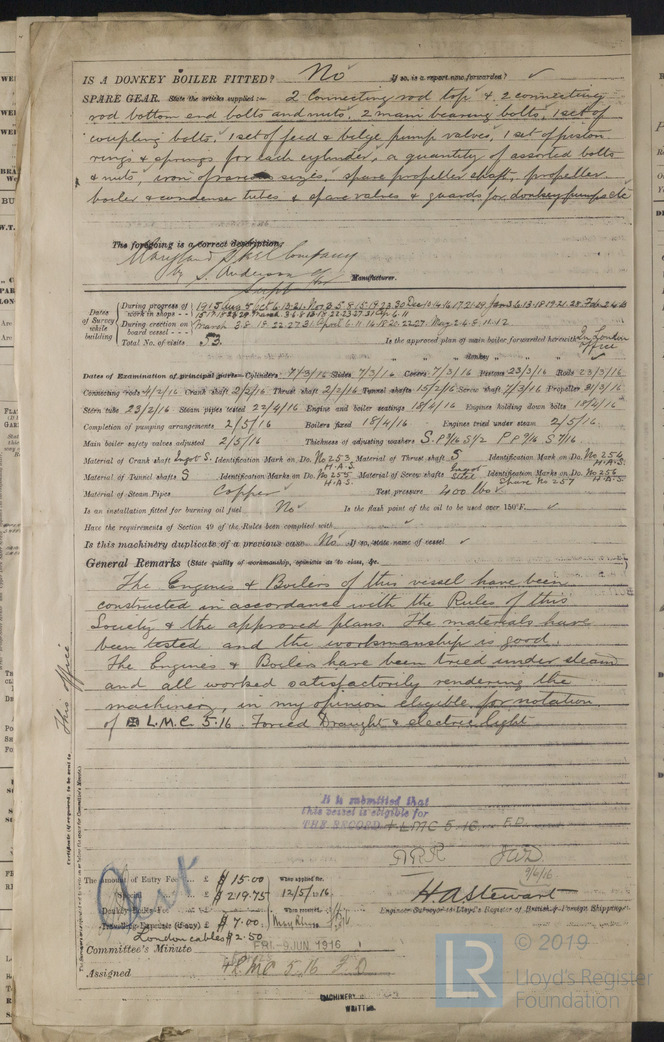 IS A DONKEY BOILER FITTED? No If so, is a report now forwarded? ✓
SPARE GEAR. State the articles supplied:— 2 Connecting rod top & 2 connecting
rod bottom end bolts and nuts, 2 main bearing bolts, 1 set of
coupling bolts, 1 set of feed & bilge pump valves, 1 set of piston
rings & springs for each cylinder, a quantity of assorted bolts
& nuts, iron of various sizes, spare propeller shaft, propeller
boiler & condenser tubes & spare valves & guards for donkey pumps etc
The foregoing is a correct description,
Maryland Steel Company
by S. Anderson
Manufacturer.
Dates of Survey while building
During progress of work in shops - -
1915 Aug 5 Oct 6.13.21. Nov 3.5.8.15.19.23.30 Dec 10.14.16.17.21.29 Jan 3.6.13.18.19.21.28 Feb 2.4.8
15.17.18.23.29 March 3.6.8.13.17.22.23.27.31 Ap 6.11
During erection on board vessel - - -
March 3.8.17.22.27.31 April 6.11.14.18.20.22.27 May 2.4.6.8.11.12
Total No. of visits 53. Is the approved plan of main boiler forwarded herewith In London office
" " " donkey " " ✓
Dates of Examination of principal parts—Cylinders 7/3/16 Slides 7/3/16 Covers 7/3/16 Pistons 23/3/16 Rods 23/3/16
Connecting rods 4/2/16 Crank shaft 2/2/16 Thrust shaft 2/2/16 Tunnel shafts 15/2/16 Screw shaft 7/3/16 Propeller 31/3/16
Stern tube 23/2/16 Steam pipes tested 22/4/16 Engine and boiler seatings 18/4/16 Engines holding down bolts 18/4/16
Completion of pumping arrangements 2/5/16 Boilers fixed 18/4/16 Engines tried under steam 2/5/16
Main boiler safety valves adjusted 2/5/16 Thickness of adjusting washers S.P 7/16 S 1/2 P.P 7/16 S 7/16
Material of Crank shaft Ingot S. Identification Mark on Do. No 253 H.A.S. Material of Thrust shaft S Identification Mark on Do. No 254 H.A.S.
Material of Tunnel shafts S Identification Marks on Do. No 255 H.A.S. Material of Screw shafts Ingot Steel Identification Marks on Do. No 256 H.A.S.
Spare No 257
Material of Steam Pipes Copper Test pressure 400 lbs
Is an installation fitted for burning oil fuel No Is the flash point of the oil to be used over 150°F. ✓
Have the requirements of Section 49 of the Rules been complied with ✓
Is this machinery duplicate of a previous case No If so, state name of vessel ✓
General Remarks (State quality of workmanship, opinions as to class, &c.
The Engines & Boilers of this vessel have been
constructed in accordance with the Rules of this
Society & the approved plans. The materials have
been tested and the workmanship is good.
The Engines & Boilers have been tried under steam
and all worked satisfactorily rendering the
machinery, in my opinion eligible for notation
of L.M.C 5.16. Forced Draught & electric light
It is submitted that
this vessel is eligible for
THE RECORD + LMC 5.16. F.D.
9/6/16
The amount of Entry Fee ... £ $ 15.00 When applied for,
Special ... £ $ 219.75 12/5/1916
Donkey Boiler Fee ... £ When received,
Travelling Expenses (if any) £ $ 7.00
London cables $ 2.50
H A Stewart
Engineer Surveyor to Lloyd's Register of British & Foreign Shipping.
Committee's Minute FRI. 9 JUN. 1916
Assigned + L.M.C 5.16 F.D
MACHINERY
WRITTEN.
Certificate (if required) to be sent to This office
© 2019
LR
Lloyd's Register
Foundation